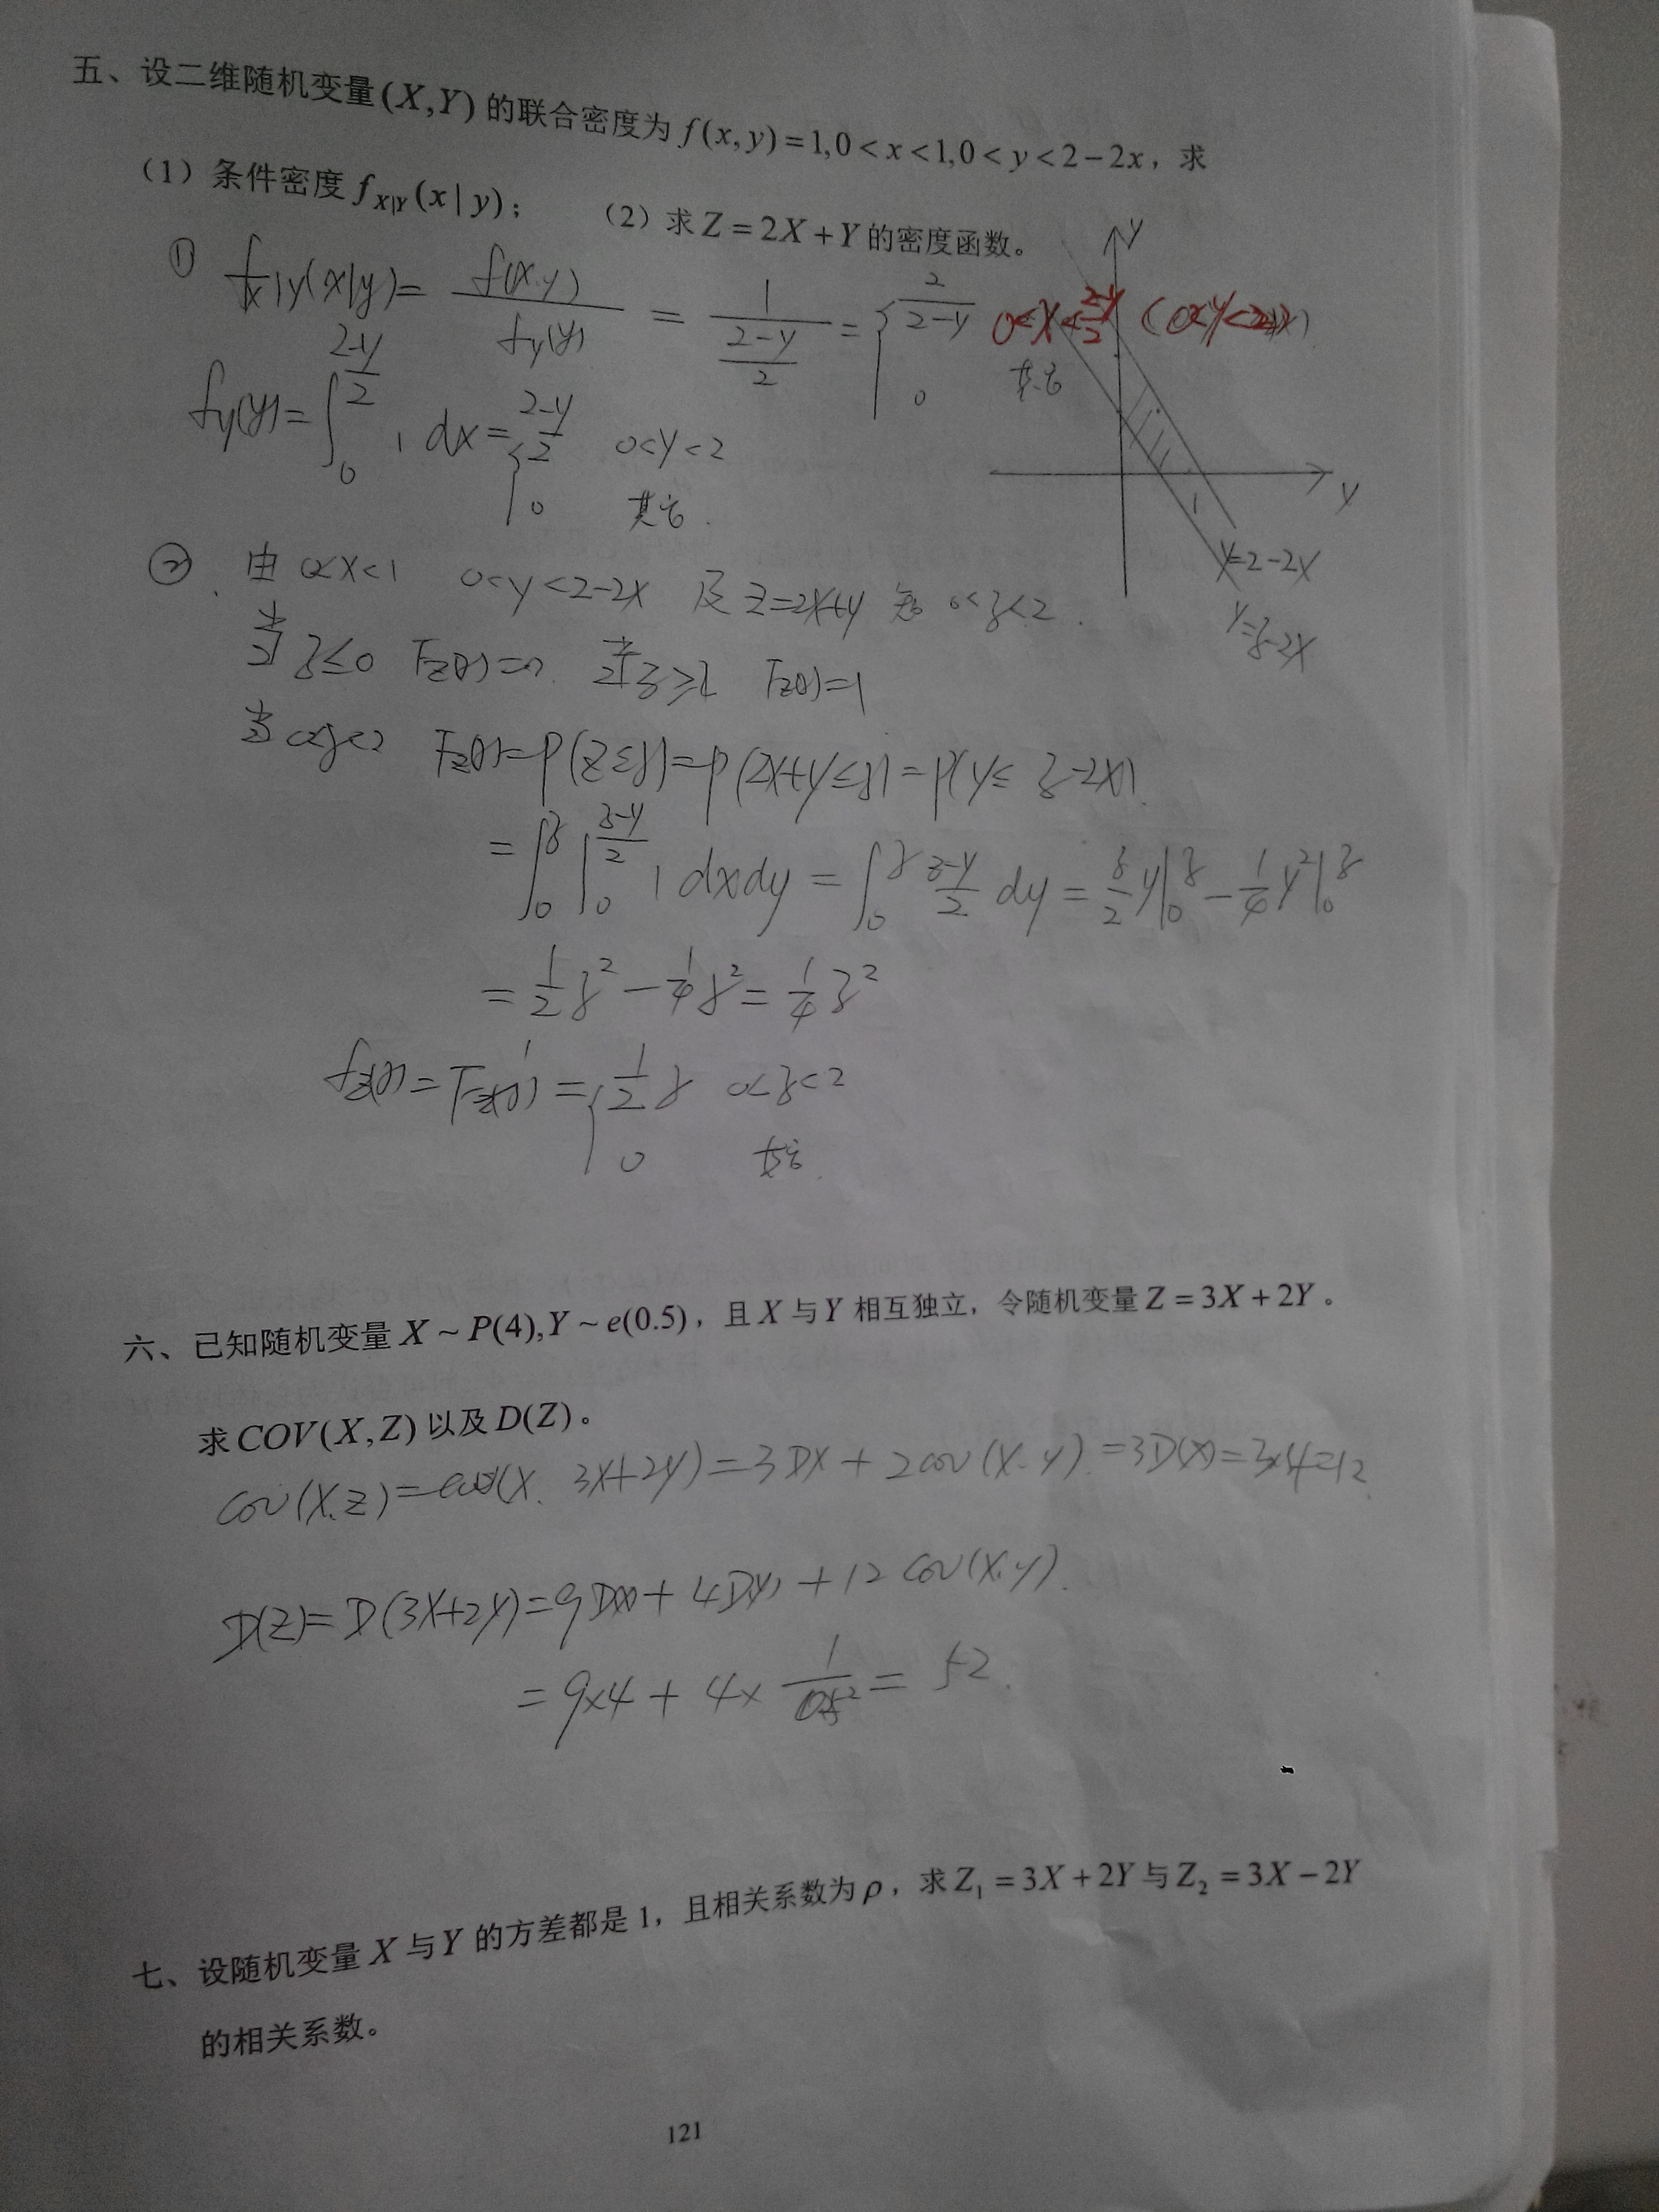 五、设二维随机变量(X,Y)的联合密度为f(x,y)=1,0<x<1,0<y<2-2x，求
（1）条件密度f_{X|Y}(x|y)； （2）求Z=2X+Y的密度函数。
① f_{x|y}(x|y)= f(x.y)/f_y(y) = 1/((2-y)/2) = { 2/(2-y) 0<x<(2-y)/2 (0<y<2
0 其它
f_y(y)=∫_0^{(2-y)/2} 1 dx = { (2-y)/2 0<y<2
0 其它.
y
y
1
y=2-2x
y=z-2x
② 由 0<x<1 0<y<2-2x 及 z=2x+y 知 0<z<2.
当 z≤0 F_Z(z)=0. 当z≥2 F_Z(z)=1
当 0<z<2 F_Z(z)=P(Z≤z)=P(2X+Y≤z)=P(Y≤z-2X).
=∫_0^z ∫_0^{(z-y)/2} 1 dxdy = ∫_0^z (z-y)/2 dy = z/2 y|_0^z - 1/4 y²|_0^z
= 1/2 z² - 1/4 z² = 1/4 z²
f_Z(z)=F_Z'(z)= { 1/2 z 0<z<2
0 其它.
六、已知随机变量X~P(4),Y~e(0.5)，且X与Y相互独立，令随机变量Z=3X+2Y。
求COV(X,Z)以及D(Z)。
cov(X,Z)=cov(X. 3X+2Y)=3DX+2cov(X.Y).=3D(X)=3×4=12.
D(Z)=D(3X+2Y)=9D(X)+4D(Y)+12cov(X.Y).
=9×4+4×1/0.5²=52.
七、设随机变量X与Y的方差都是1，且相关系数为ρ，求Z₁=3X+2Y与Z₂=3X-2Y
的相关系数。
121